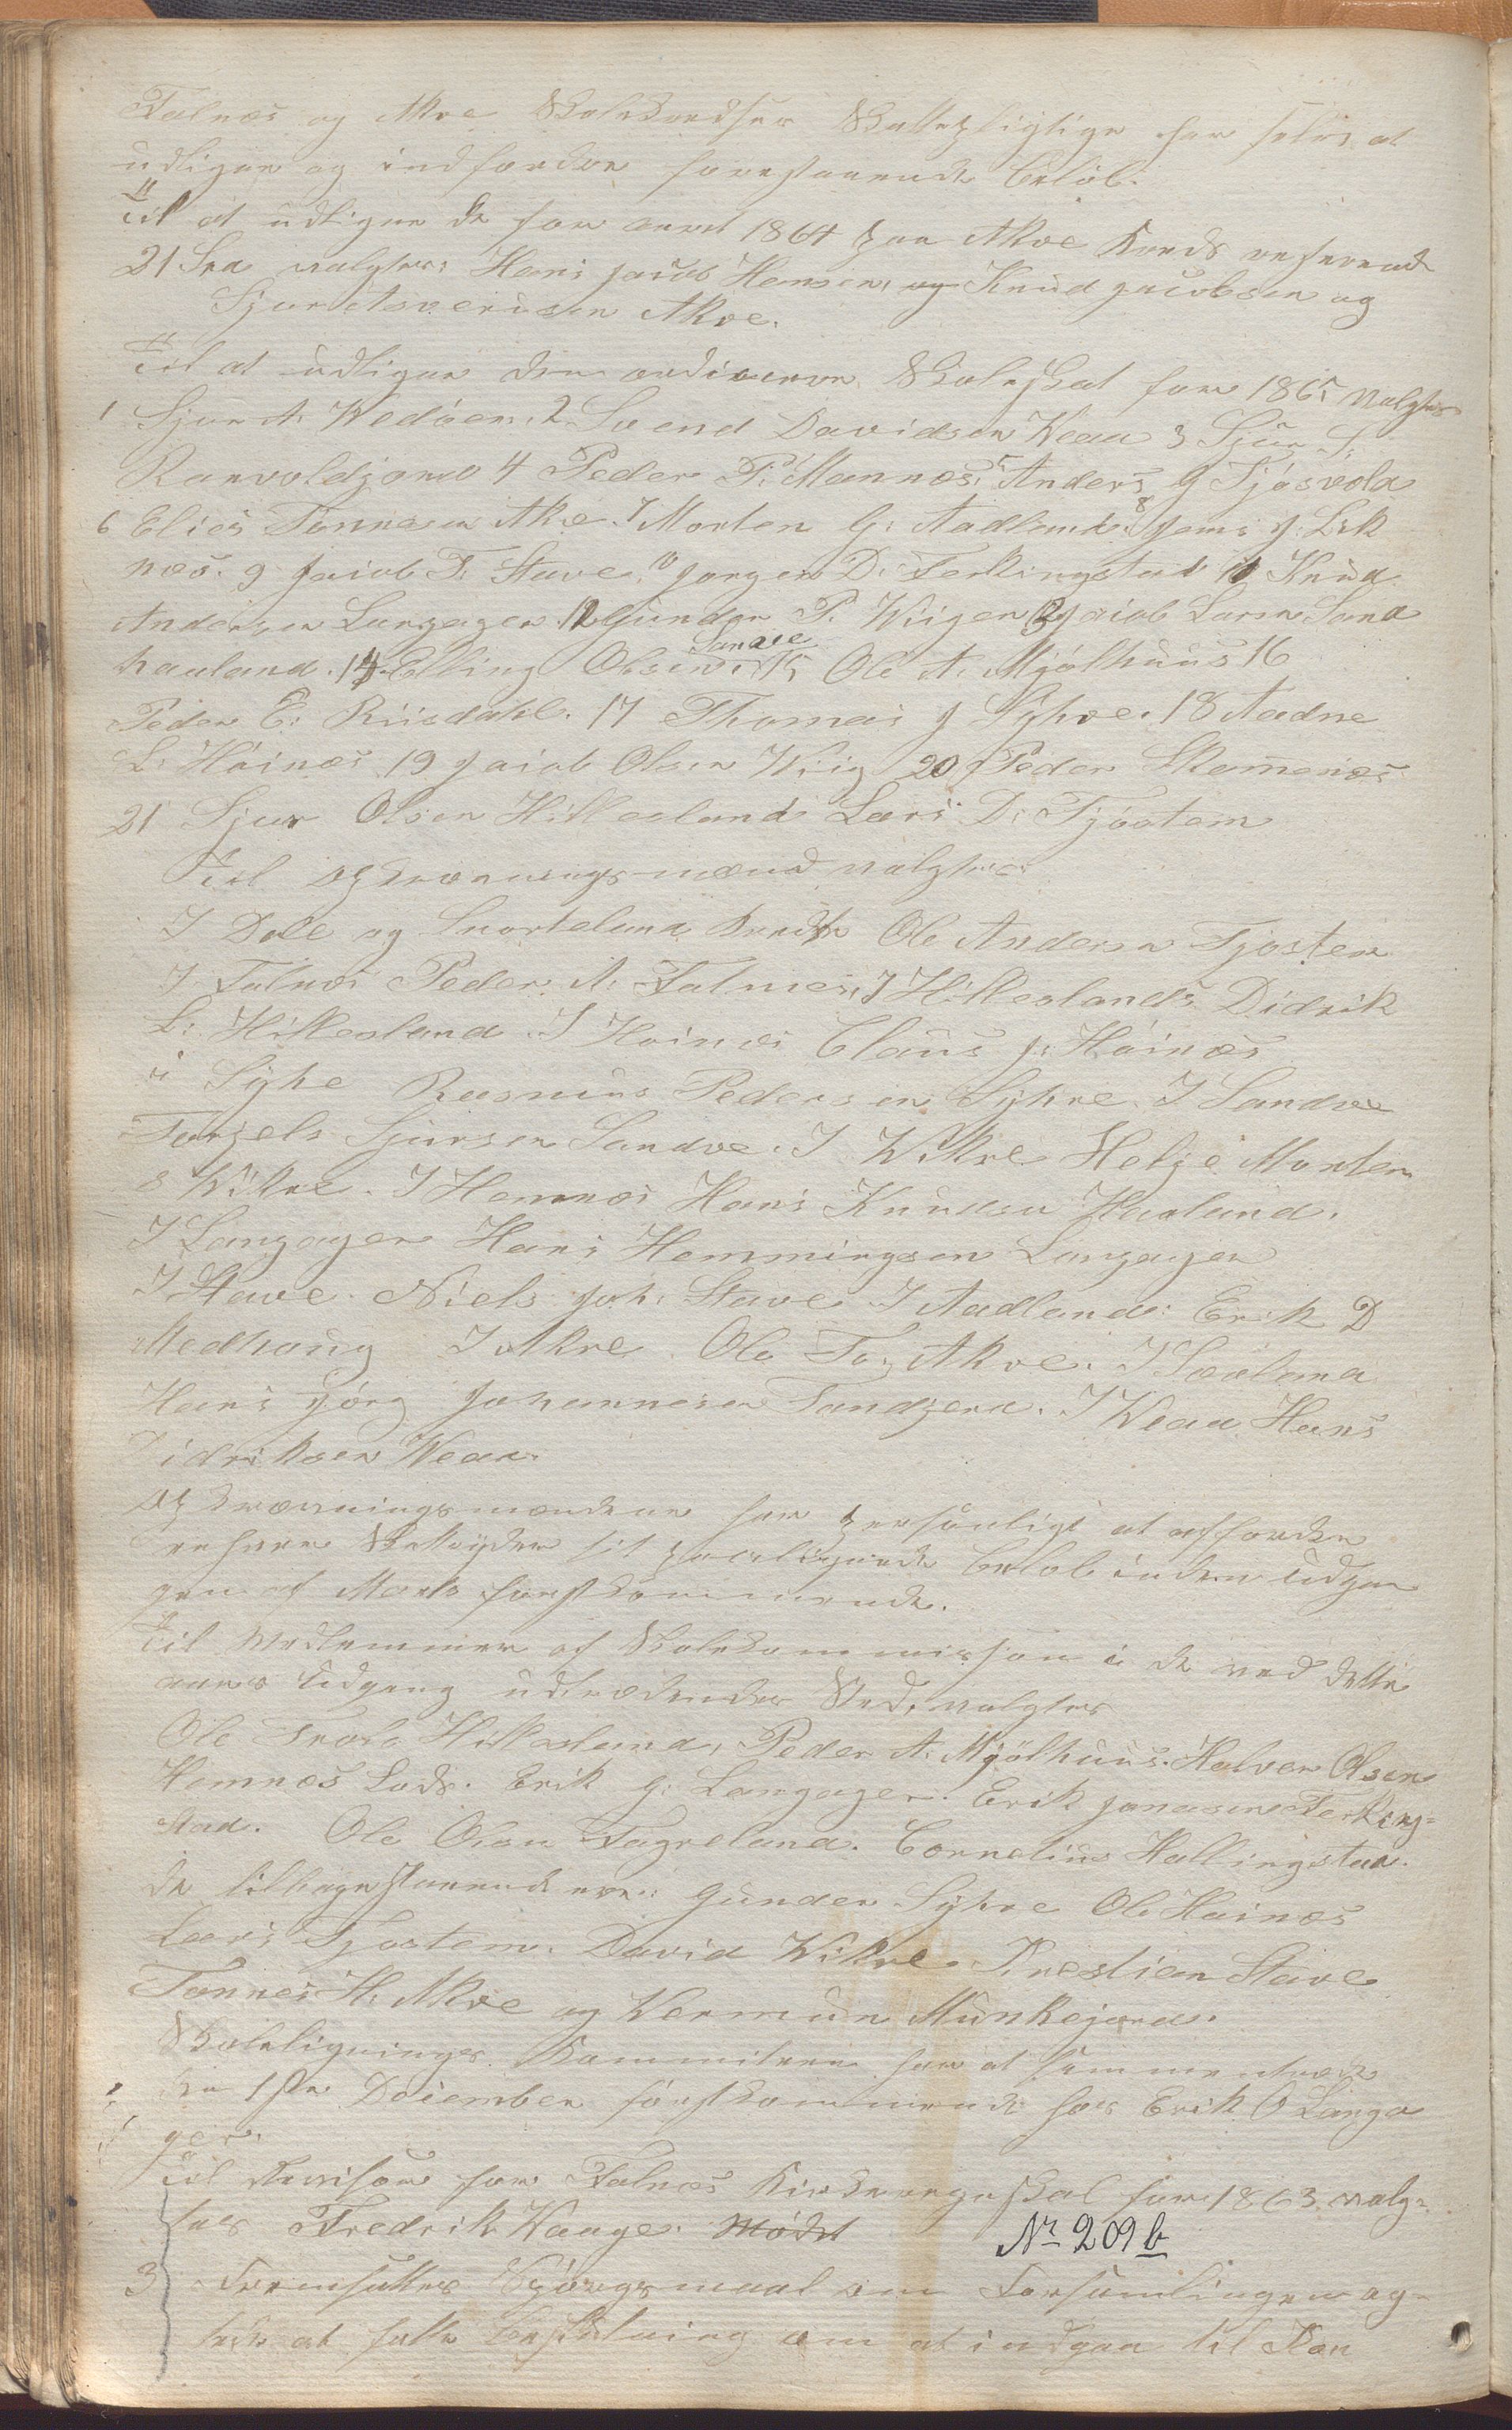 Falnæs og Akre Skolekredses Skattepligtige har selv at
udligne og indfordre forestaaende Beløb.
Til at udligne de for aaret 1864 paa Akre Kreds
21 Spd valgtes: Hans Jacob Hansen, og Knud Jacobsen og
Sjur Asverusen Akre.
Til at udligne den ordinære Skoleskat for 1865 valgtes
1 Sjur A. Wedøen. 2 Svend Davidsen Weaa 3 Sjur S.
Ranvoldjord 4 Peder P. Mannæs. 5 Anders G Tjøsvold
6 Elies Tønnesen Akre. 7 Morten G. Aadland. 8 Jens J. Lik
næs. 9 Jacob T. Stave. 10 Jørgen D. Ferkingstad 11 Knud
Andersen Langager. 12 Gunder P. Wiigen 13 Jacob Larsen Sand
hauland. 14 Elling Olsen Sandve 15 Ole A. Mjølhuus 16
Peder E. Riisdahl. 17 Thomas J Syhre. 18 Aadne
L. Høinæs 19 Jacob Olsen Wiig 20 Peder Skamenæs
21 Sjur Olsen Hillesland Lars D. Tjøstem
Til Opkrævningsmænd valgtes
I Dale og Snorteland Kreds Ole Andersen Tjøstem
I Falnæs Peder A. Falnæs, I Hillesland Didrik
L. Hillesland. I Høinæs Claus J. Høinæs
i Syhre Rasmus Pedersen Syhre. I Sandve
Torgels Sjursen Sandve. I Wikre Helje Morten
s Wikre. I Hemnæs Hans Knudsen Haaland.
I Langager Hans Hemmingsen Langager
I Stave Niels Joh. Stave I Aadland: Erik D
Medhaug I Akre Ole T. Akre. I Sævland
Hans Jørg Johannesen Sandgerd. I Weaa Hans
Didriksen Weaa.
Opkrævningsmændene har personligt at affordre
enhver Skatteyder sit paalignede Beløb inden Udgan
gen af Marts førstkommende.
Til Medlemmer af Skolekommission i de ved dette
aars Udgang udtrædendes Sted, valgtes
Ole Hillesland, Peder A. Mjølhuus. Halvor Olsen
Hemnæs Lods. Erik G. Langager. Erik Jonasen Ferking-
stad. Ole Olsen Fagreland. Cornelius Hallingstad.
de tilbagestaaende ere: Gunder Syhre Ole Høinæs
Lars Tjøstem. David Wikre. Krestian Stave
Tønnes H. Akre og Vermun Munkejord.
Skoleligningskommiteen har at sammentræde
den 1ste December førstkommende hos Erik G Langa
ger.
Til Revisor for Falnæs Kirkeregnskab for 1863 valg-
tes Fredrik Waage. Mødet
Nr 209 b
3 Fremsattes Spørgsmaal om Forsamlingen ag-
tede at fatte Beslutning om at indgaa til Kon